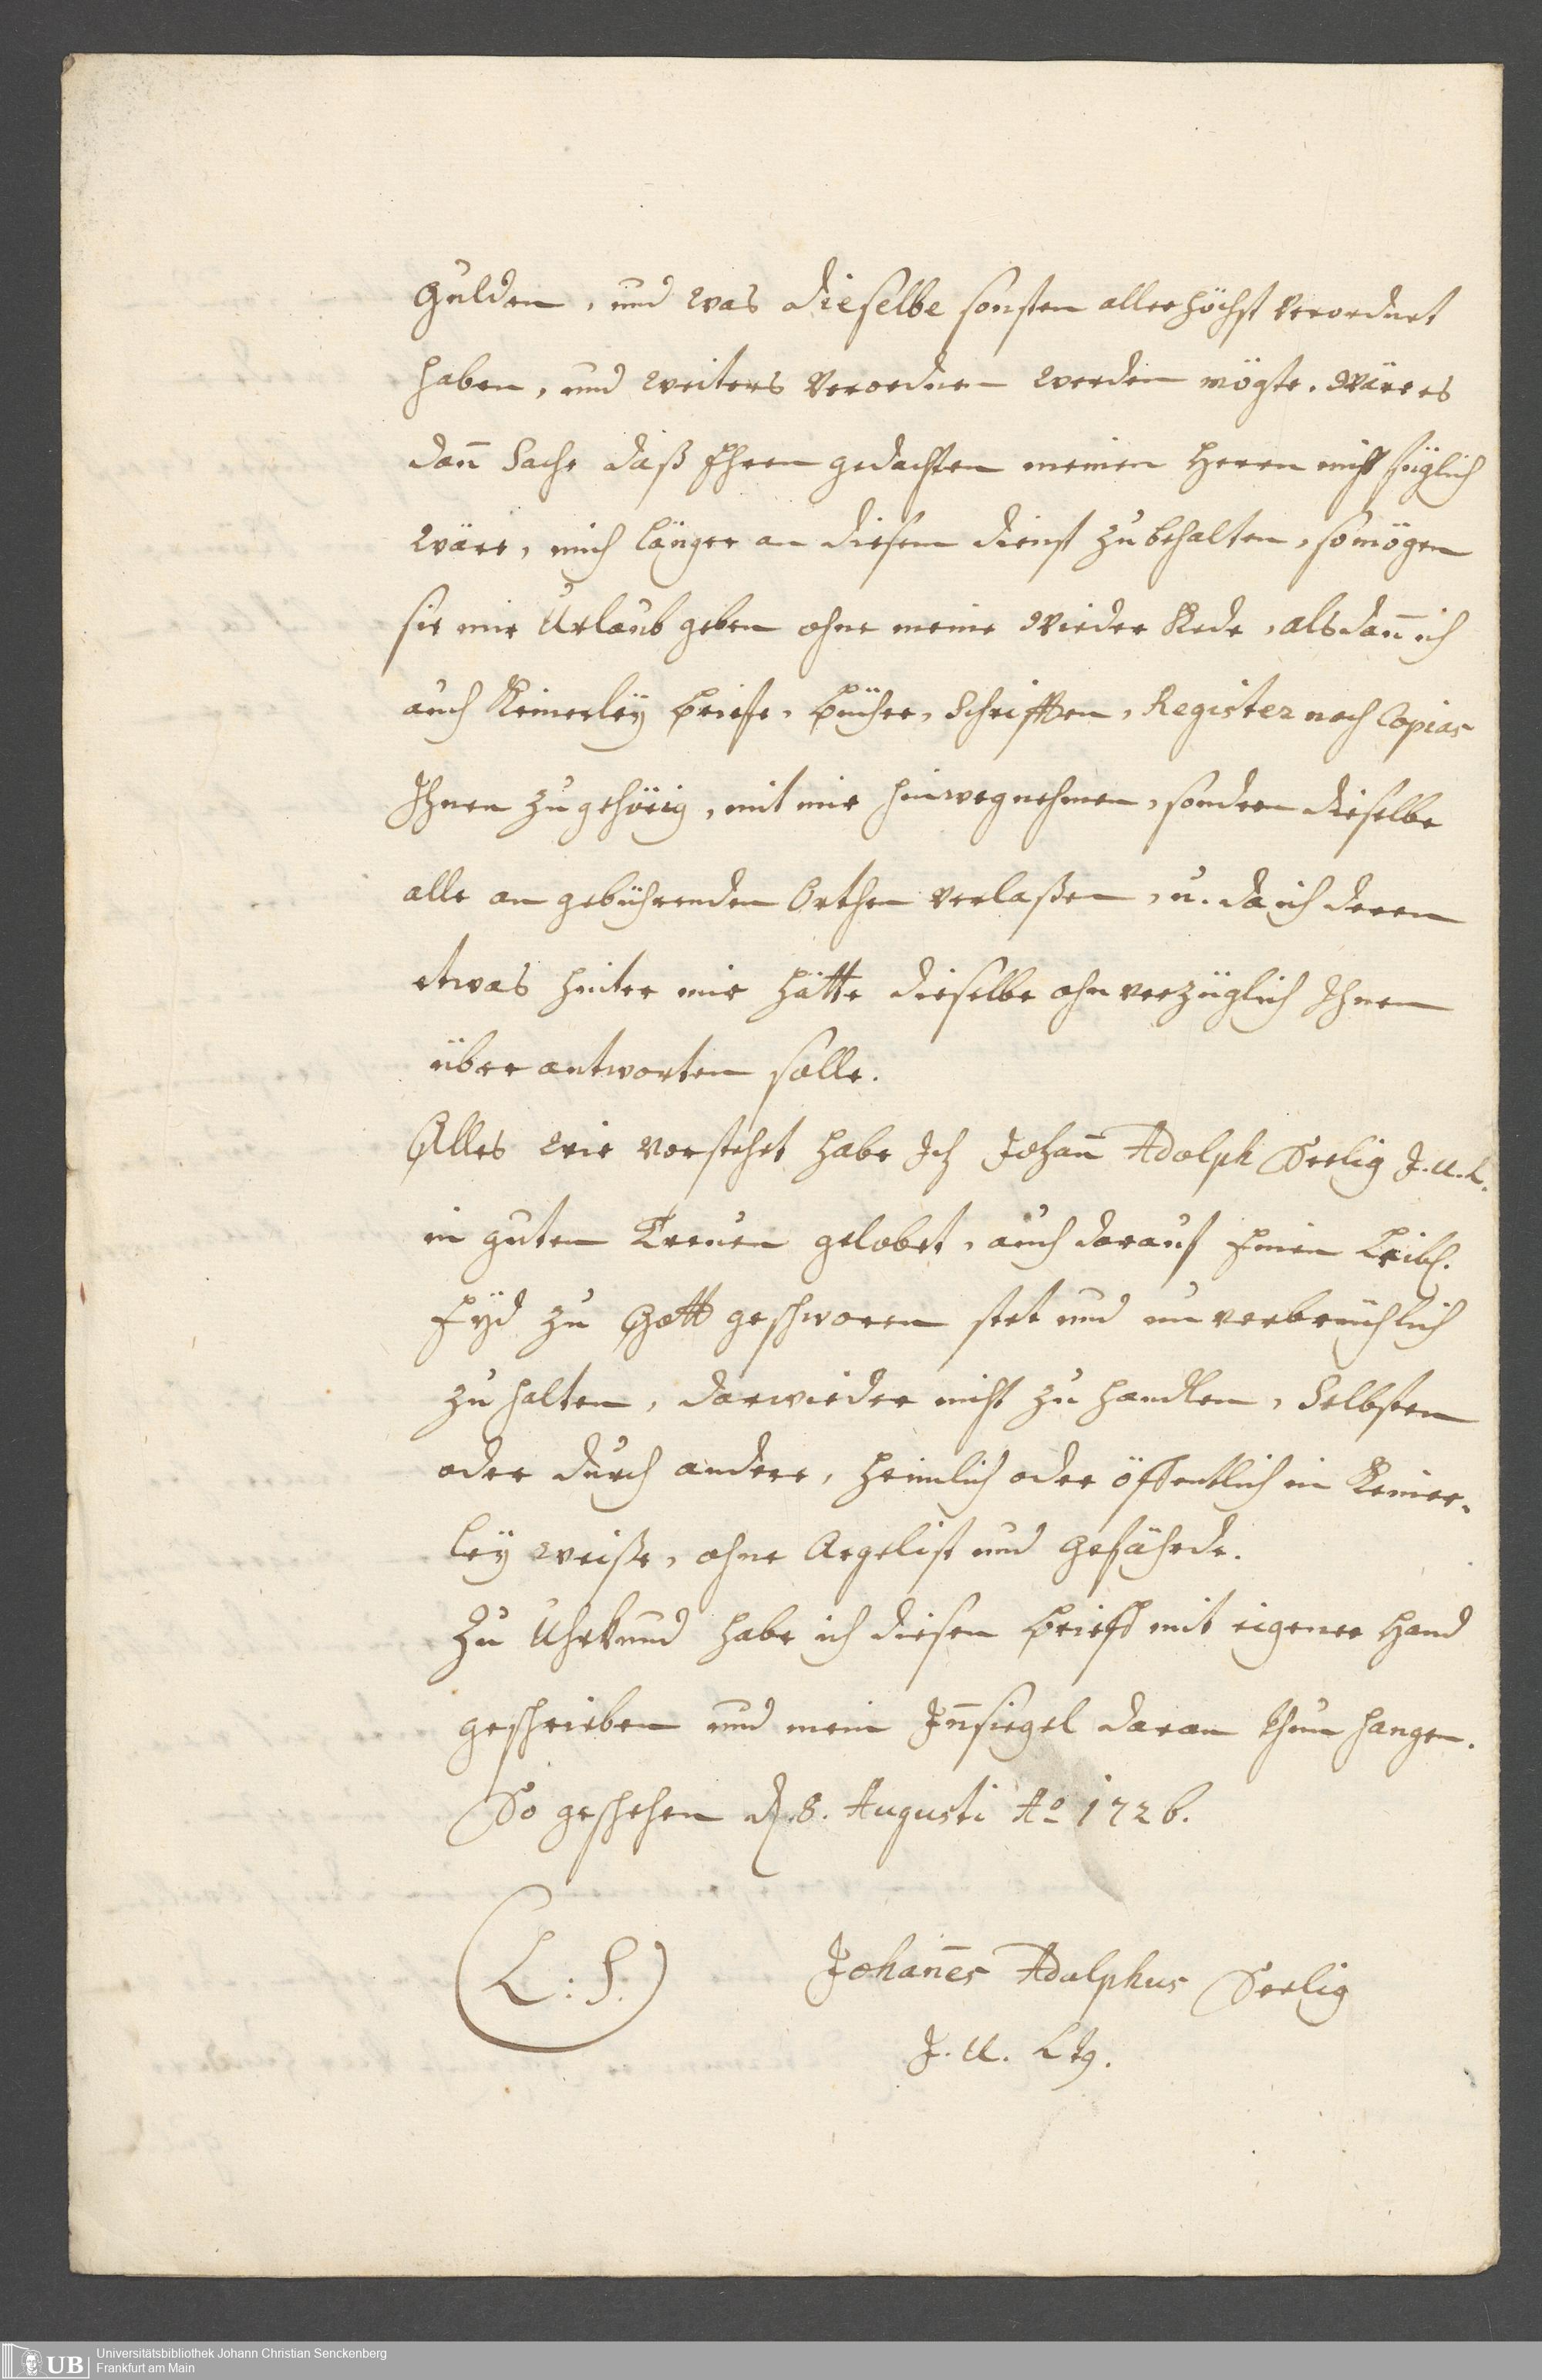 Gulden, und was dieselbe sonsten allerhöchst verordnet
haben, und weiters verordnen werden mögte. Wäre es
dañ Sache daß Ihren gedachten meinen Herren nicht füglich
wäre, mich länger an diesem Dienst zu behalten, so mögen
sie mir Urlaub geben ohne meine Wieder Rede, als dañ ich
auch Keinerleÿ Briefe, Bücher, Schrifften, Register noch Copias
Ihnen zu gehörig, mit mir hinwegnehmen, sondern dieselbe
alle an gebührenden Orthen verlaßen, u. da ich deren
etwas hinter mir hätte dieselbe ohnverzüglich Ihnen
über antworten solle.
Alles wie vorstehet habe Ich Johañ Adolph Seelig J. U. L.
in guten Treuen gelobet, auch darauf Einen Leibl.
Eÿd zu Gott geschworen stet und unverbrüchlich
zu halten, darwieder nicht zu handlen, Selbsten
oder durch andere, heimlich oder öffentlich in Keiner-
leÿ weiße, ohne Argelist und Gefährde.
Zu Uhrkund habe ich diesen Brieff mit eigener Hand
geschrieben und mein Iñsiegel daran thun hangen.
So geschehen d. 8. Augusti Aº 1726.
(L: S.) Johañes Adolphus Seelig
J. U. Ltg.
UB Universitätsbibliothek Johann Christian Senckenberg
Frankfurt am Main